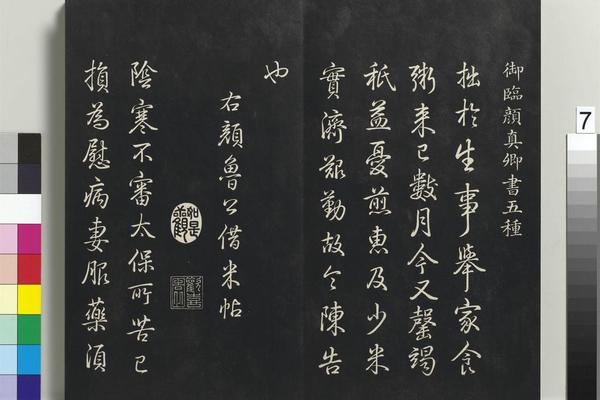 御臨顏真卿書五種
拙於生事舉家食
粥來已數月今又罄竭
秪益憂煎惠及少米
實濟艱勤故令陳告
也
右顏魯公借米帖
如是觀
陰寒不審太保所苦已
損為慰病妻服藥須
7